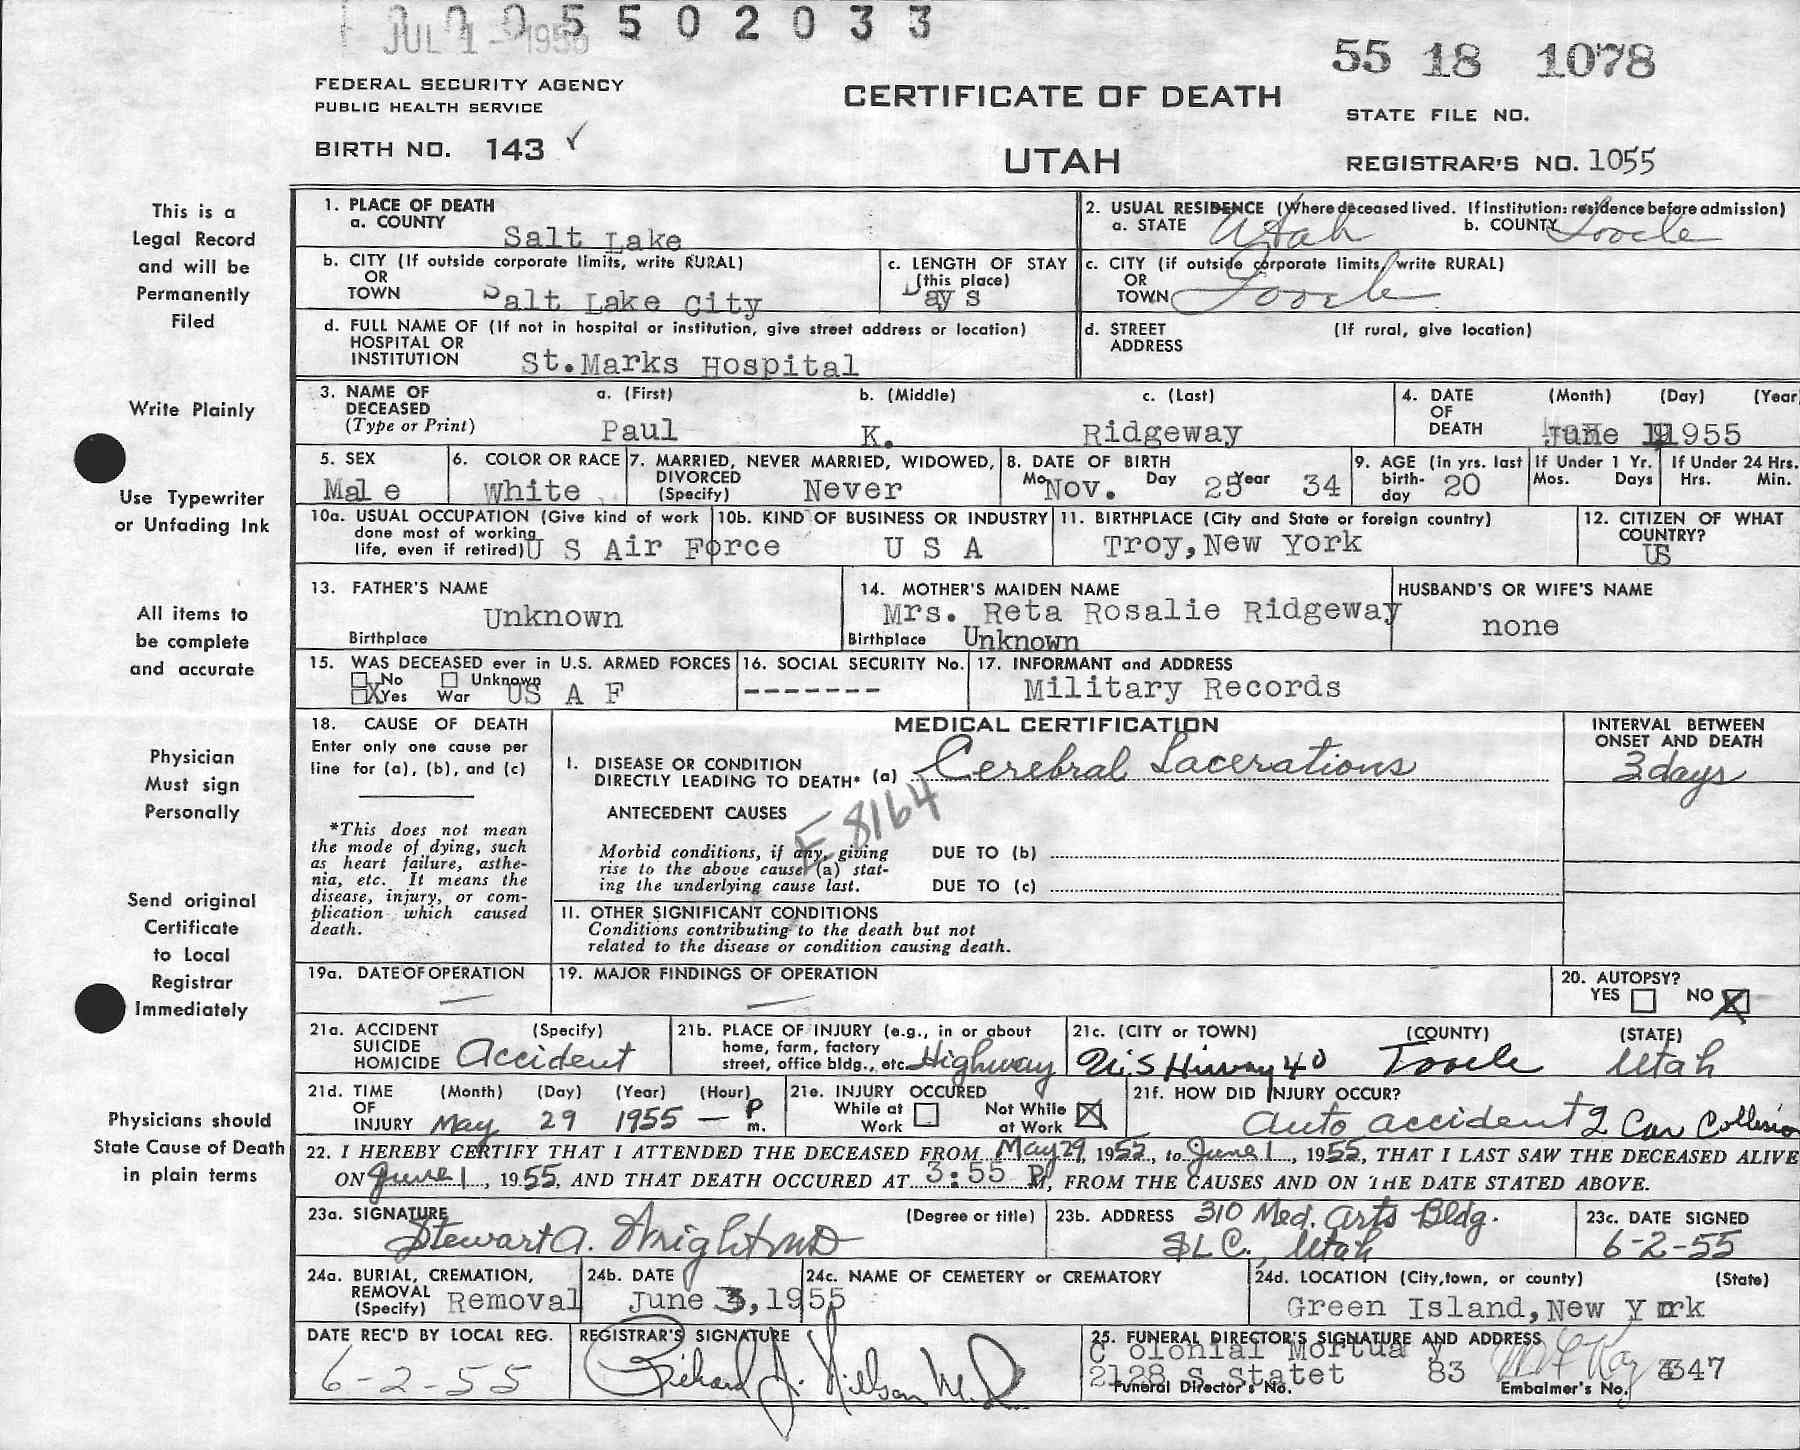 0005502033
JUL 1 - 1955
55 18 1078
FEDERAL SECURITY AGENCY
PUBLIC HEALTH SERVICE
CERTIFICATE OF DEATH
STATE FILE NO.
BIRTH NO. 143 ✓
UTAH
REGISTRAR'S NO. 1055
This is a
Legal Record
and will be
Permanently
Filed
Write Plainly
Use Typewriter
or Unfading Ink
All items to
be complete
and accurate
Physician
Must sign
Personally
Send original
Certificate
to Local
Registrar
Immediately
Physicians should
State Cause of Death
in plain terms
1. PLACE OF DEATH
a. COUNTY Salt Lake
2. USUAL RESIDENCE (Where deceased lived. If institution: residence before admission)
a. STATE Utah b. COUNTY Tooele
b. CITY (If outside corporate limits, write RURAL)
OR
TOWN Salt Lake City
c. LENGTH OF STAY
(this place)
Days
c. CITY (if outside corporate limits, write RURAL)
OR
TOWN Tooele
d. FULL NAME OF (If not in hospital or institution, give street address or location)
HOSPITAL OR
INSTITUTION St.Marks Hospital
d. STREET (If rural, give location)
ADDRESS
3. NAME OF a. (First) b. (Middle) c. (Last)
DECEASED
(Type or Print) Paul K. Ridgeway
4. DATE (Month) (Day) (Year
OF
DEATH June 1, 1955
5. SEX
Male
6. COLOR OR RACE
White
7. MARRIED, NEVER MARRIED, WIDOWED,
DIVORCED
(Specify) Never
8. DATE OF BIRTH
Mo Nov. Day 25 Year 34
9. AGE (in yrs. last
birth-
day 20
If Under 1 Yr.
Mos. Days
If Under 24 Hrs.
Hrs. Min.
10a. USUAL OCCUPATION (Give kind of work
done most of working
life, even if retired) U S Air Force
10b. KIND OF BUSINESS OR INDUSTRY
U S A
11. BIRTHPLACE (City and State or foreign country)
Troy, New York
12. CITIZEN OF WHAT
COUNTRY?
US
13. FATHER'S NAME
Unknown
Birthplace
14. MOTHER'S MAIDEN NAME
Mrs. Reta Rosalie Ridgeway
Birthplace Unknown
HUSBAND'S OR WIFE'S NAME
none
15. WAS DECEASED ever in U.S. ARMED FORCES
No Unknown
X Yes War US A F
16. SOCIAL SECURITY No.
-------
17. INFORMANT and ADDRESS
Military Records
18. CAUSE OF DEATH
Enter only one cause per
line for (a), (b), and (c)
*This does not mean
the mode of dying, such
as heart failure, asthe-
nia, etc. It means the
disease, injury, or com-
plication which caused
death.
MEDICAL CERTIFICATION
INTERVAL BETWEEN
ONSET AND DEATH
I. DISEASE OR CONDITION
DIRECTLY LEADING TO DEATH* (a) Cerebral Lacerations
3 days
ANTECEDENT CAUSES
E 8164
Morbid conditions, if any, giving
rise to the above cause (a) stat-
ing the underlying cause last.
DUE TO (b)
DUE TO (c)
II. OTHER SIGNIFICANT CONDITIONS
Conditions contributing to the death but not
related to the disease or condition causing death.
19a. DATE OF OPERATION
—
19. MAJOR FINDINGS OF OPERATION
—
20. AUTOPSY?
YES NO X
21a. ACCIDENT (Specify)
SUICIDE
HOMICIDE Accident
21b. PLACE OF INJURY (e.g., in or about
home, farm, factory
street, office bldg., etc. Highway
21c. (CITY or TOWN) (COUNTY) (STATE)
U.S Hiway 40 Tooele Utah
21d. TIME (Month) (Day) (Year) (Hour)
OF
INJURY May 29 1955 — P m.
21e. INJURY OCCURED
While at Work Not While at Work X
21f. HOW DID INJURY OCCUR?
Auto accident 2 Car Collision
22. I HEREBY CERTIFY THAT I ATTENDED THE DECEASED FROM May 29, 1955, to June 1, 1955, THAT I LAST SAW THE DECEASED ALIVE
ON June 1, 1955, AND THAT DEATH OCCURED AT 3:55 P M, FROM THE CAUSES AND ON THE DATE STATED ABOVE.
23a. SIGNATURE (Degree or title)
Stewart A. Wright MD
23b. ADDRESS 310 Med. Arts Bldg.
SLC., Utah
23c. DATE SIGNED
6-2-55
24a. BURIAL, CREMATION,
REMOVAL
(Specify) Removal
24b. DATE
June 3, 1955
24c. NAME OF CEMETERY or CREMATORY
24d. LOCATION (City, town, or county) (State)
Green Island, New York
DATE REC'D BY LOCAL REG.
6-2-55
REGISTRAR'S SIGNATURE
Richard J. Nilson M.D.
25. FUNERAL DIRECTOR'S SIGNATURE AND ADDRESS
Colonial Mortua y
2128 S Statet 83 4347
Funeral Director's No. Embalmer's No.